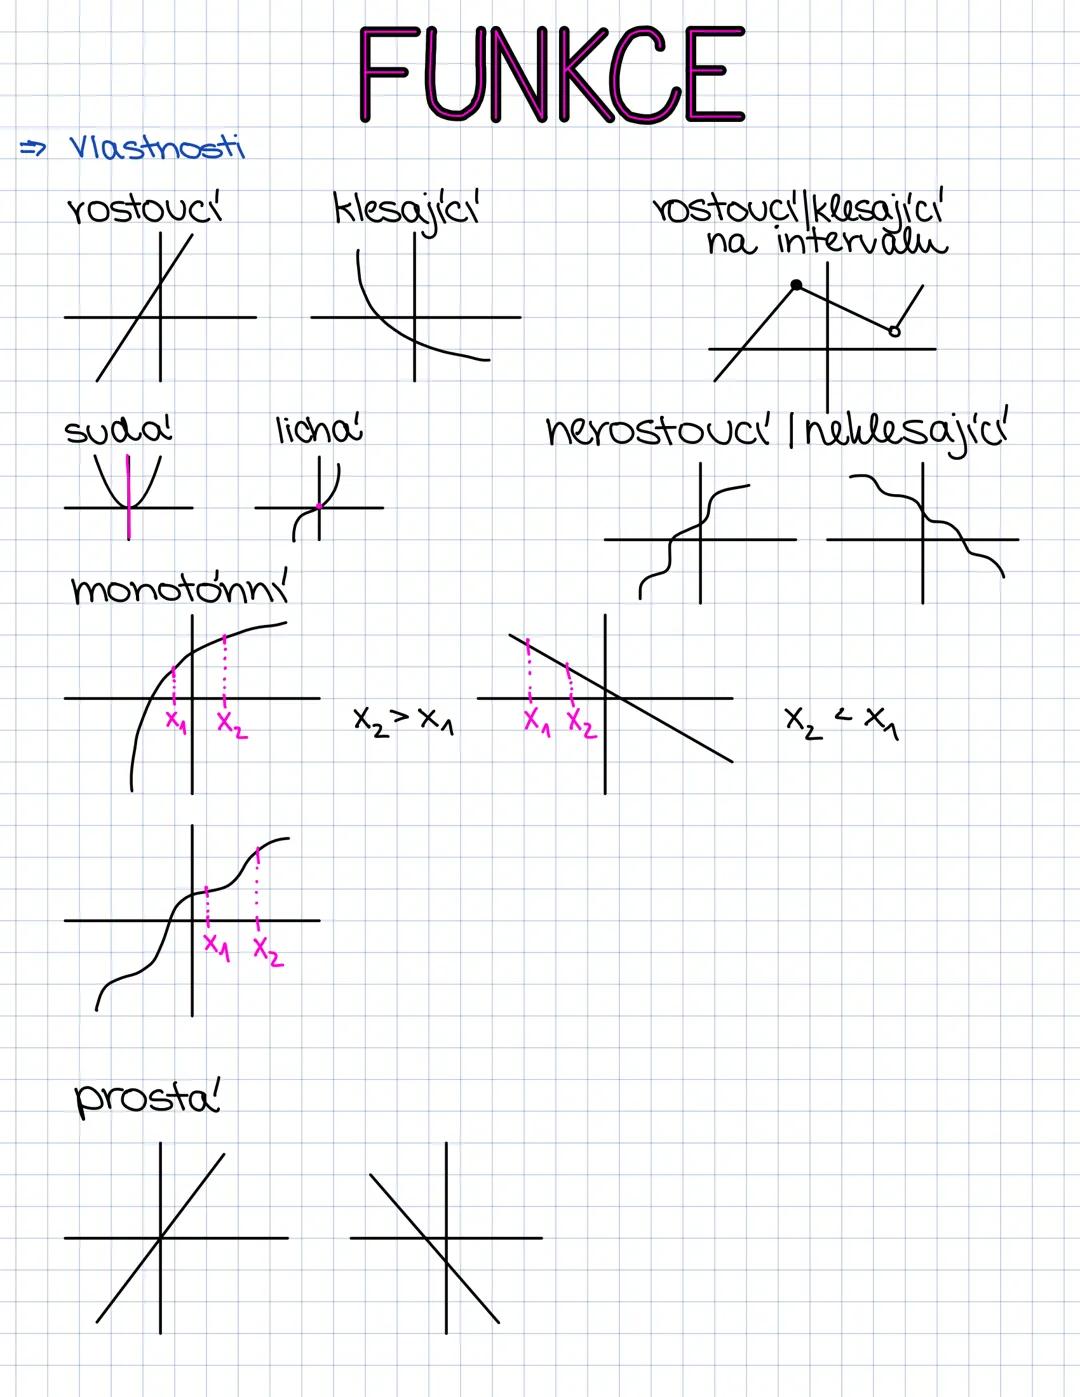 FUNKCE
⇒ Vlastnosti
rostoucí klesající rostoucí/klesající
na intervalu
sudá lichá nerostoucí / neklesající
monotónní
x₁ x₂ x₂ > x₁ x₁ x₂ x₂ < x₁
x₁ x₂
prostá